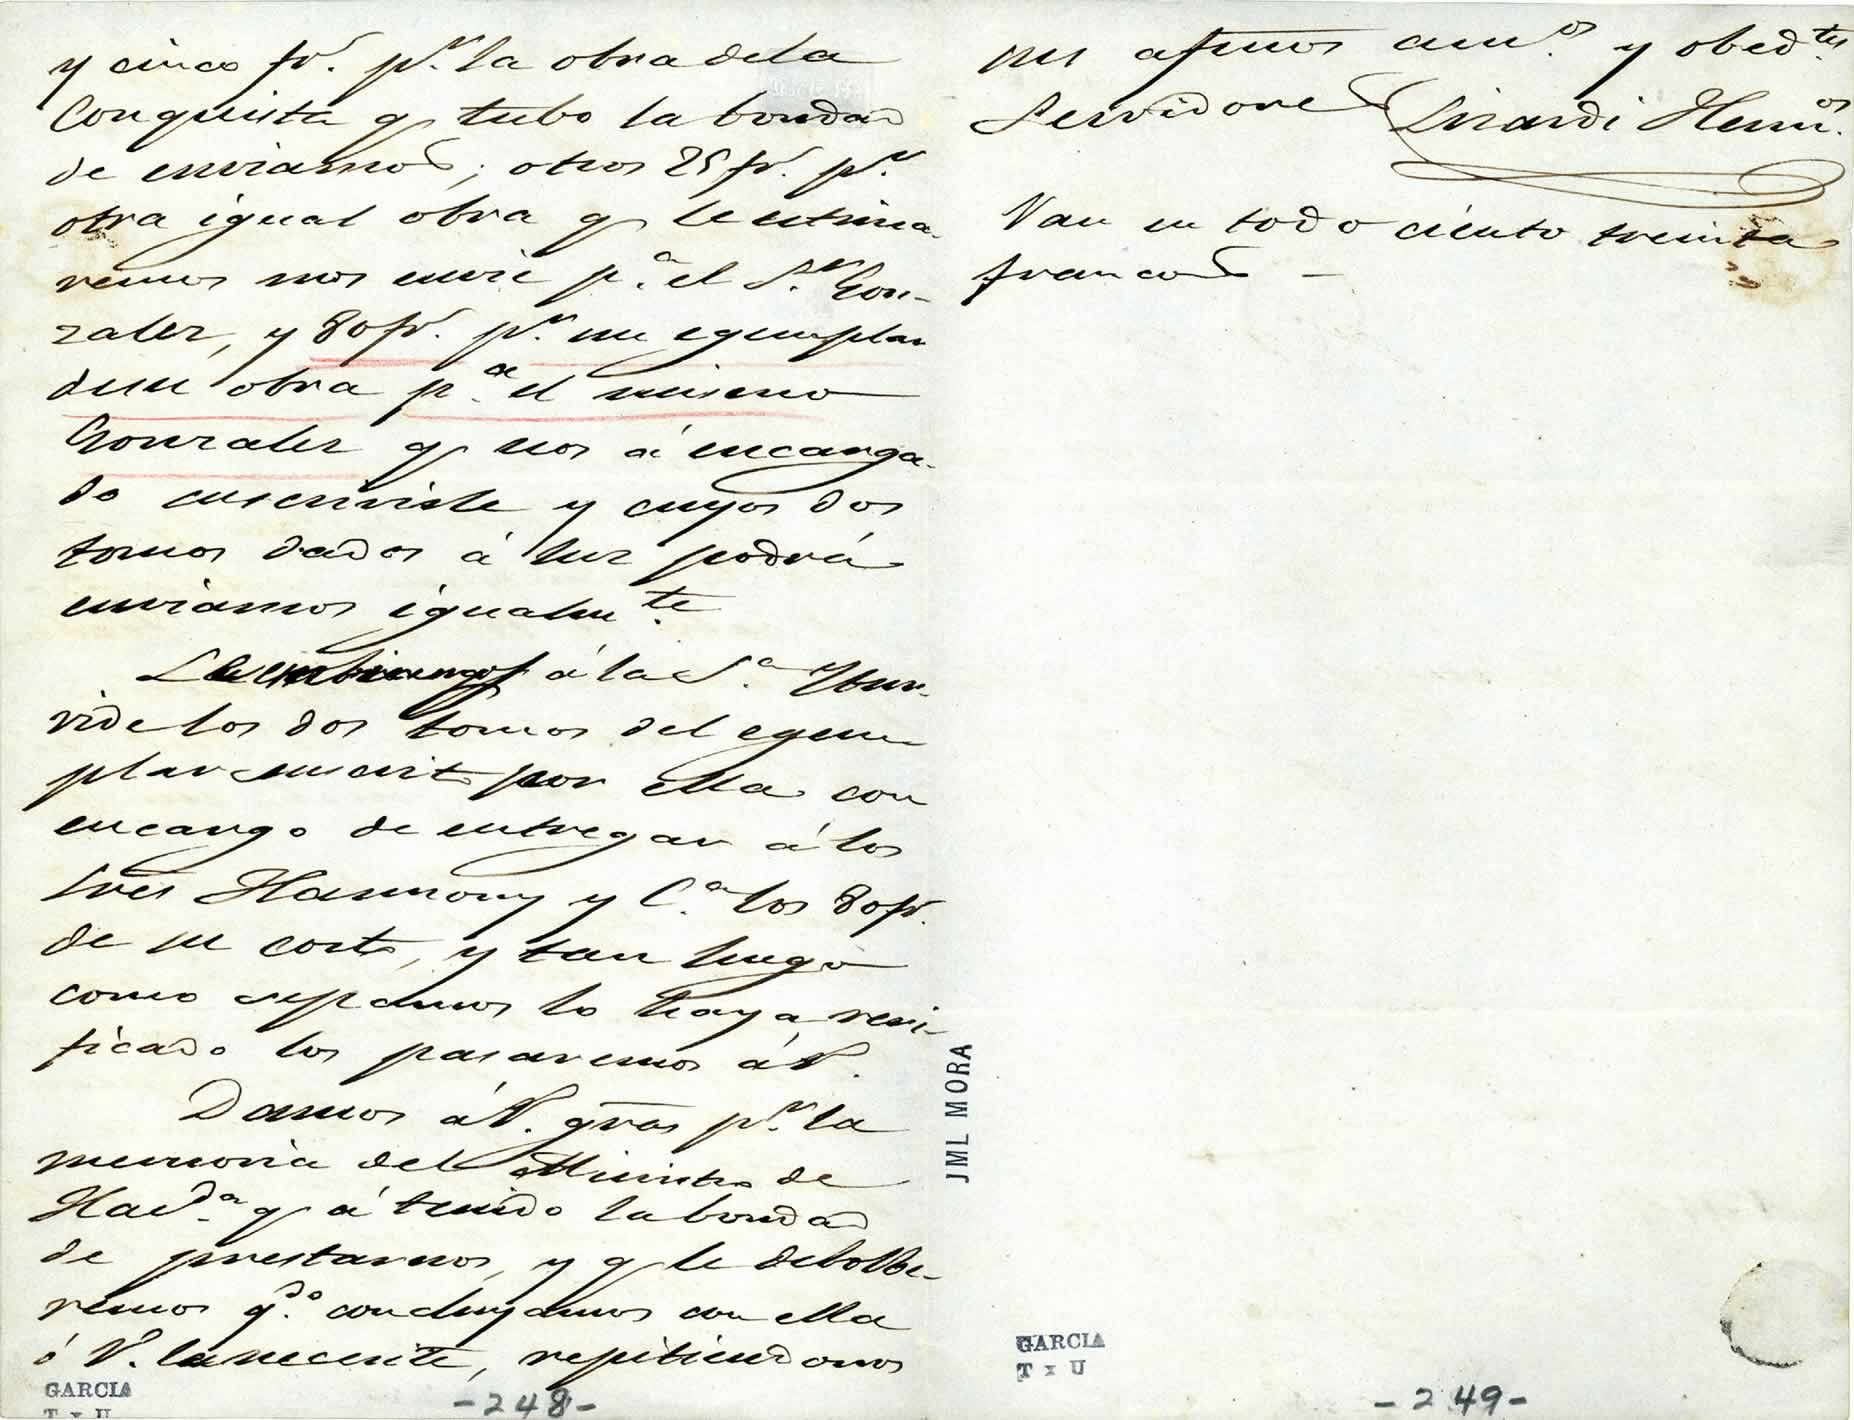 y cinco fr.s p.r la obra de la
Conquista q tubo la bondad
de enviarnos; otros 25 fr.s p.r
otra igual obra q le estima-
remos nos envie p.a el S.r Gon-
zalez, y 80 fr.s p.r un egemplar
de su obra p.a el mismo
Gonzalez q nos á encarga-
do suscrivirle y cuyos dos
tomos dados á luz podrá
enviarnos igualm.te
á la S.a Ytur-
vide los dos tomos del egem
plar suscrito por ella con
encargo de entregar á los
Sres Harmony y C.a los 80 fr.s
de su costo, y tan luego
como sepamos lo haya veri-
ficado los pasaremos á V.
Damos á V. gras p.r la
memoria del Ministro de
Hacd.a q á tenido la bondad
de prestarnos, y q le debolbe-
remos q.do concluyamos con ella
ó V. la necesite, repitiendonos
GARCIA
T x U
-248-
sus afmos am.os y obed.tes
Servidores Lizardi Herm.os
Van en todo ciento treinta
francos –
JML MORA
GARCIA
T x U
-249-